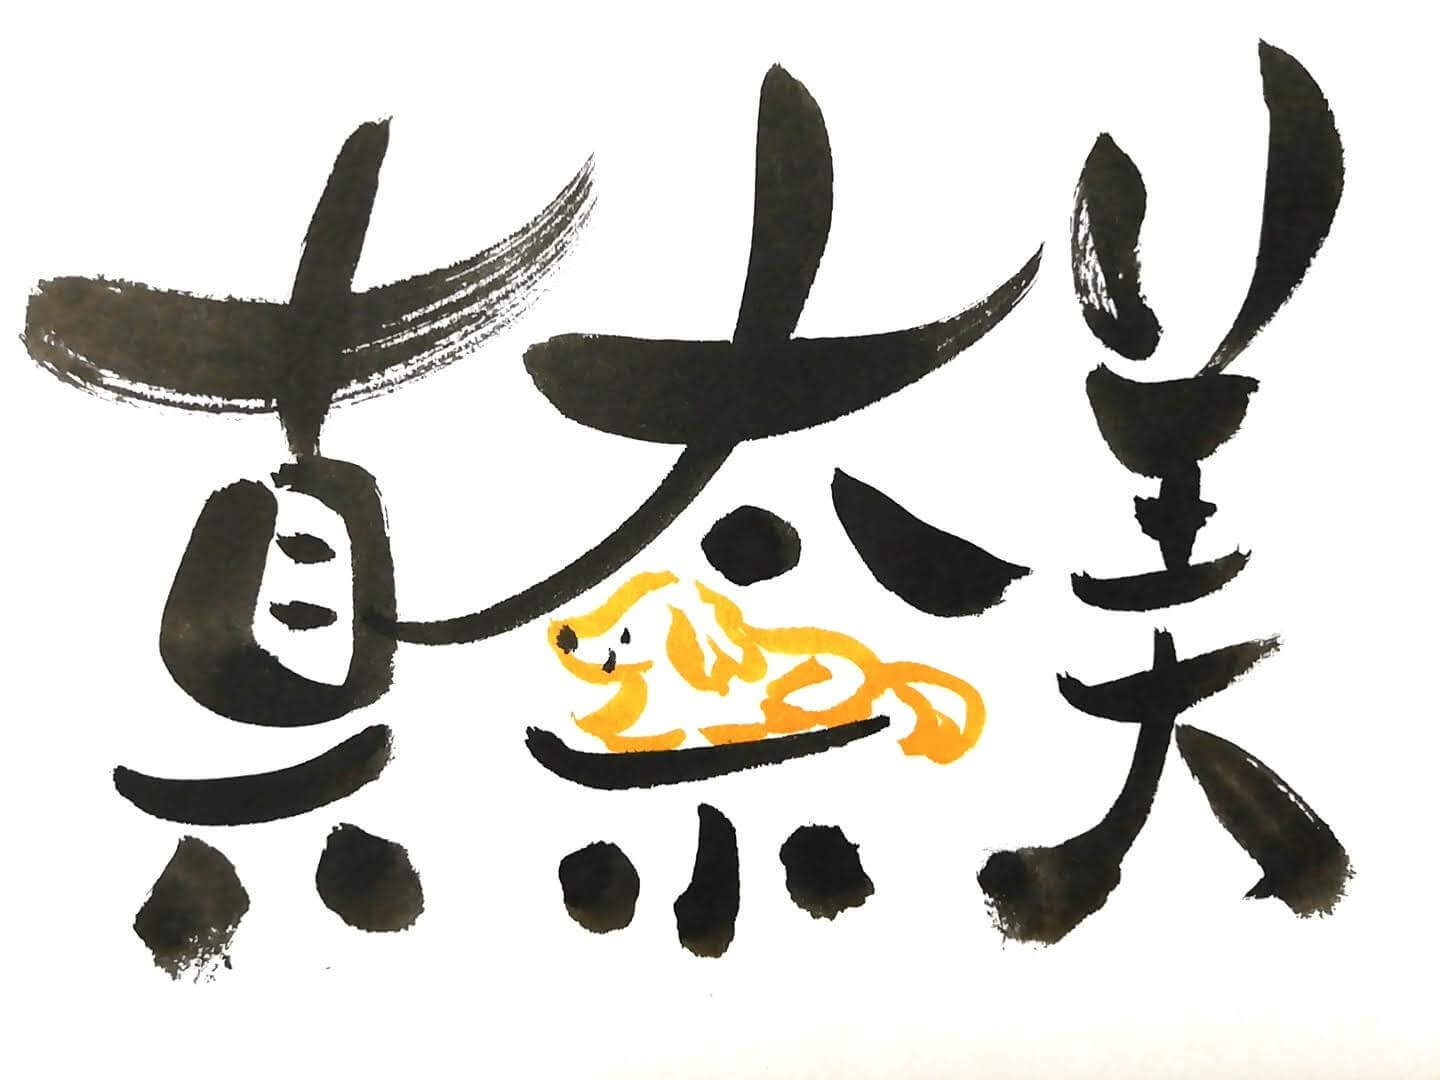 真奈美